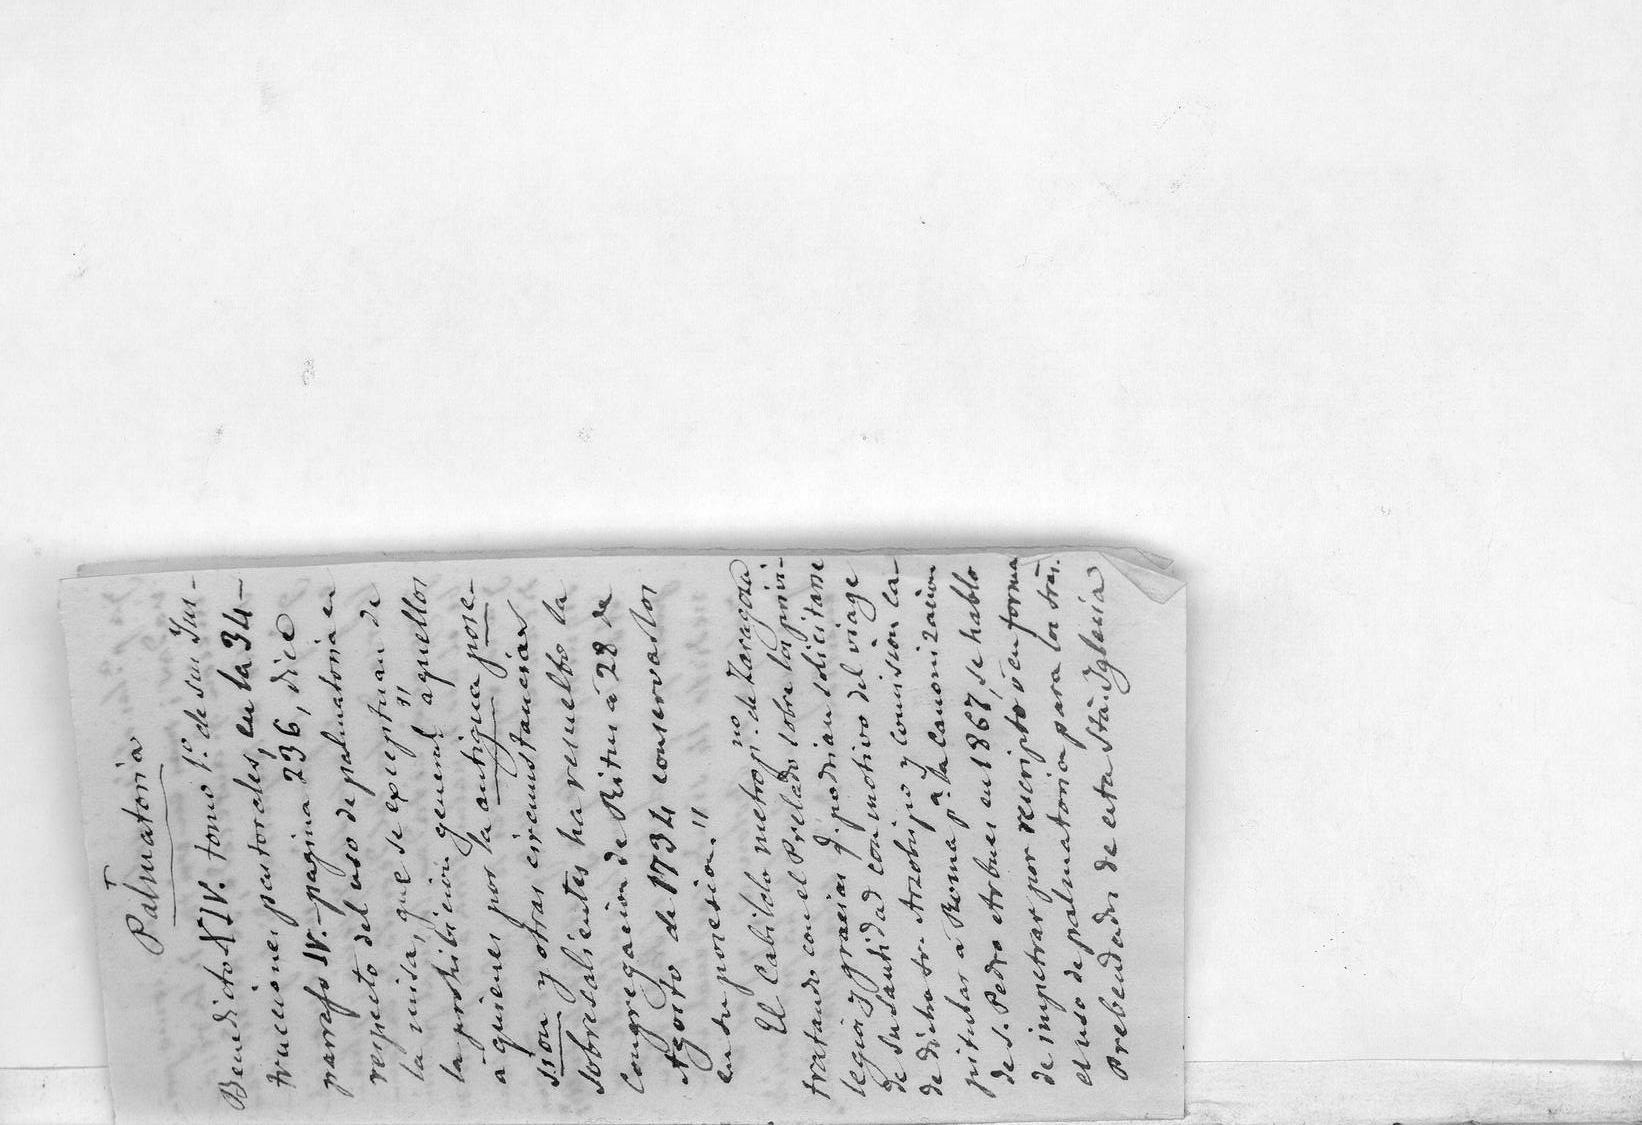 Palmatoria
Benedicto XIV. tomo 1.º de sus Ins-
trucciones pastorales, en la 34-
parrafo IV.- pagina 236, dice
respecto del uso de palmatoria en
la misa, que se exceptuan de
la prohibicion general "aquellos
á quienes por la antigua pose-
sion y otras circunstancias
sobresalientes ha resuelto la
Congregacion de Ritus á 28 de
Agosto de 1734 conservarlos
en su posesion."
El Cabildo metropno. de Zaragoza
tratando con el Prelado sobre los privi-
legios y gracias q. podrian solicitarse
de su Santidad con motivo del viage
de dicho Sr. Arzobispo y comision ca-
pitular á Roma pa. la canonizacion
de S. Pedro Arbues en 1867, se habló
de impetrar por rescripto ó en forma
el uso de palmatoria para los Sres.
Prebendados de esta Sta. Iglesia